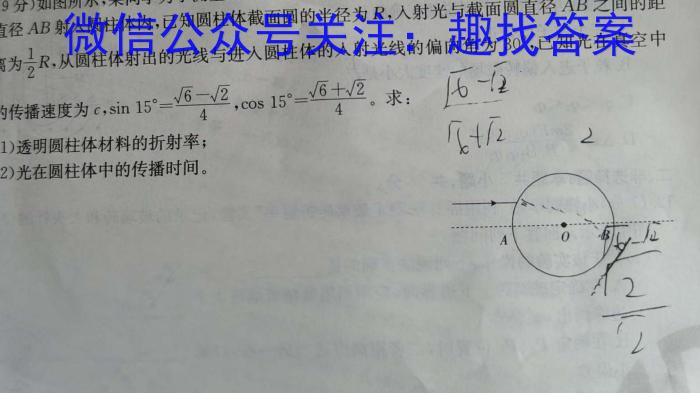 9分)如图所示,某同学为了
直径AB射入圆柱体内,已知圆柱体截面圆的半径为R,入射光与截面圆直径AB之间的距
离为1/2R,从圆柱体射出的光线与进入圆柱体的入射光线的偏向角为30°,已知光在真空中
微信公众号关注:趣找答案
的传播速度为c,sin 15°=(√6-√2)/4,cos 15°=(√6+√2)/4。求:
1)透明圆柱体材料的折射率;
2)光在圆柱体中的传播时间。
√6-√2
√6+√2
2
A O B
√6-√2
2
2